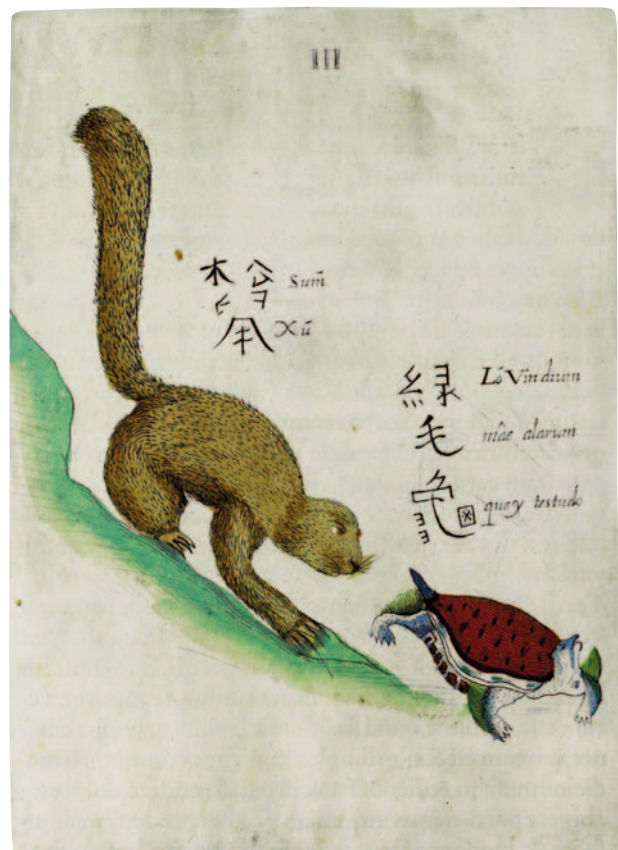 Sum̃
Xũ
緑 Ló Viridium
毛 mâe alarum
龜 quey testudo